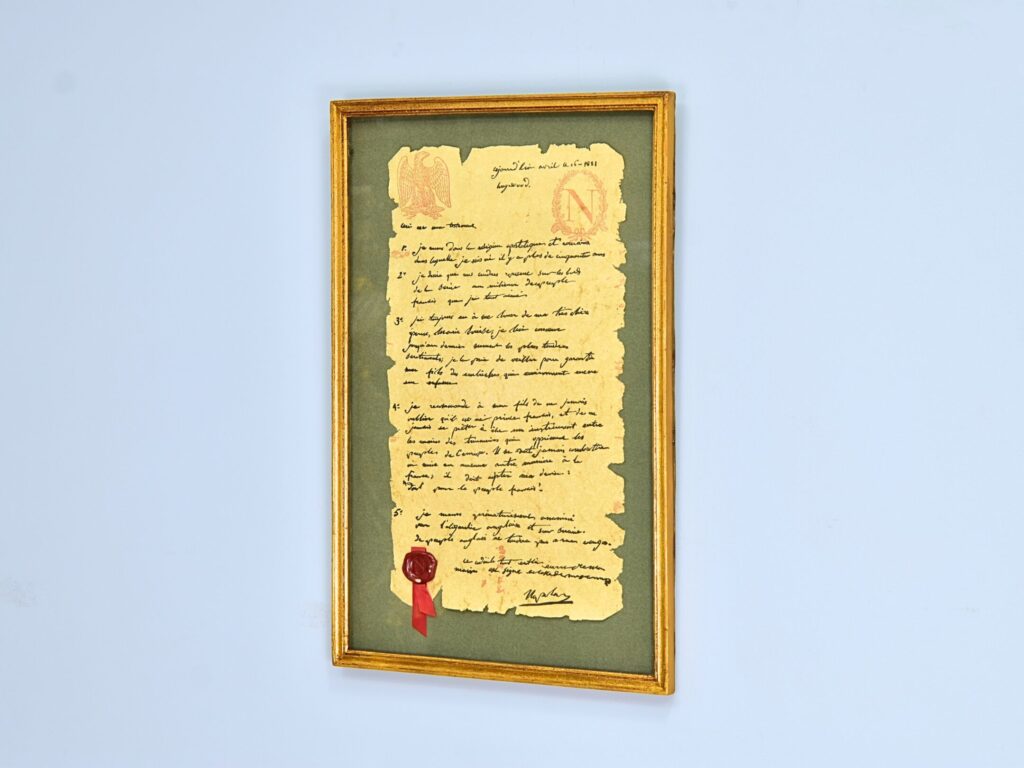 aujourd'hui avril le 15-1821
longwood.
N
Ceci est mon testament
1° je meurs dans la religion apostolique et romaine
dans laquelle je suis né il y a plus de cinquante ans
2° je désire que mes cendres reposent sur les bords
de la Seine au milieu de ce peuple
français que j'ai tant aimé
3° j'ai toujours eu à me louer de ma très chère
épouse, Marie Louise; je lui conserve
jusqu'au dernier moment les plus tendres
sentiments; je la prie de veiller pour garantir
mon fils des embûches qui environnent encore
son enfance
4° je recommande à mon fils de ne jamais
oublier qu'il est né prince français, et de ne
jamais se prêter à être un instrument entre
les mains des triumvirs qui oppriment les
peuples de l'europe. Il ne doit jamais combattre
ni nuire en aucune autre manière à la
france; il doit adopter ma devise:
tout pour le peuple français.
5° je meurs prématurément assassiné
par l'oligarchie anglaise et son
le peuple anglais ne tardera pas à me venger.
ce
main et signé
Napoleon
N